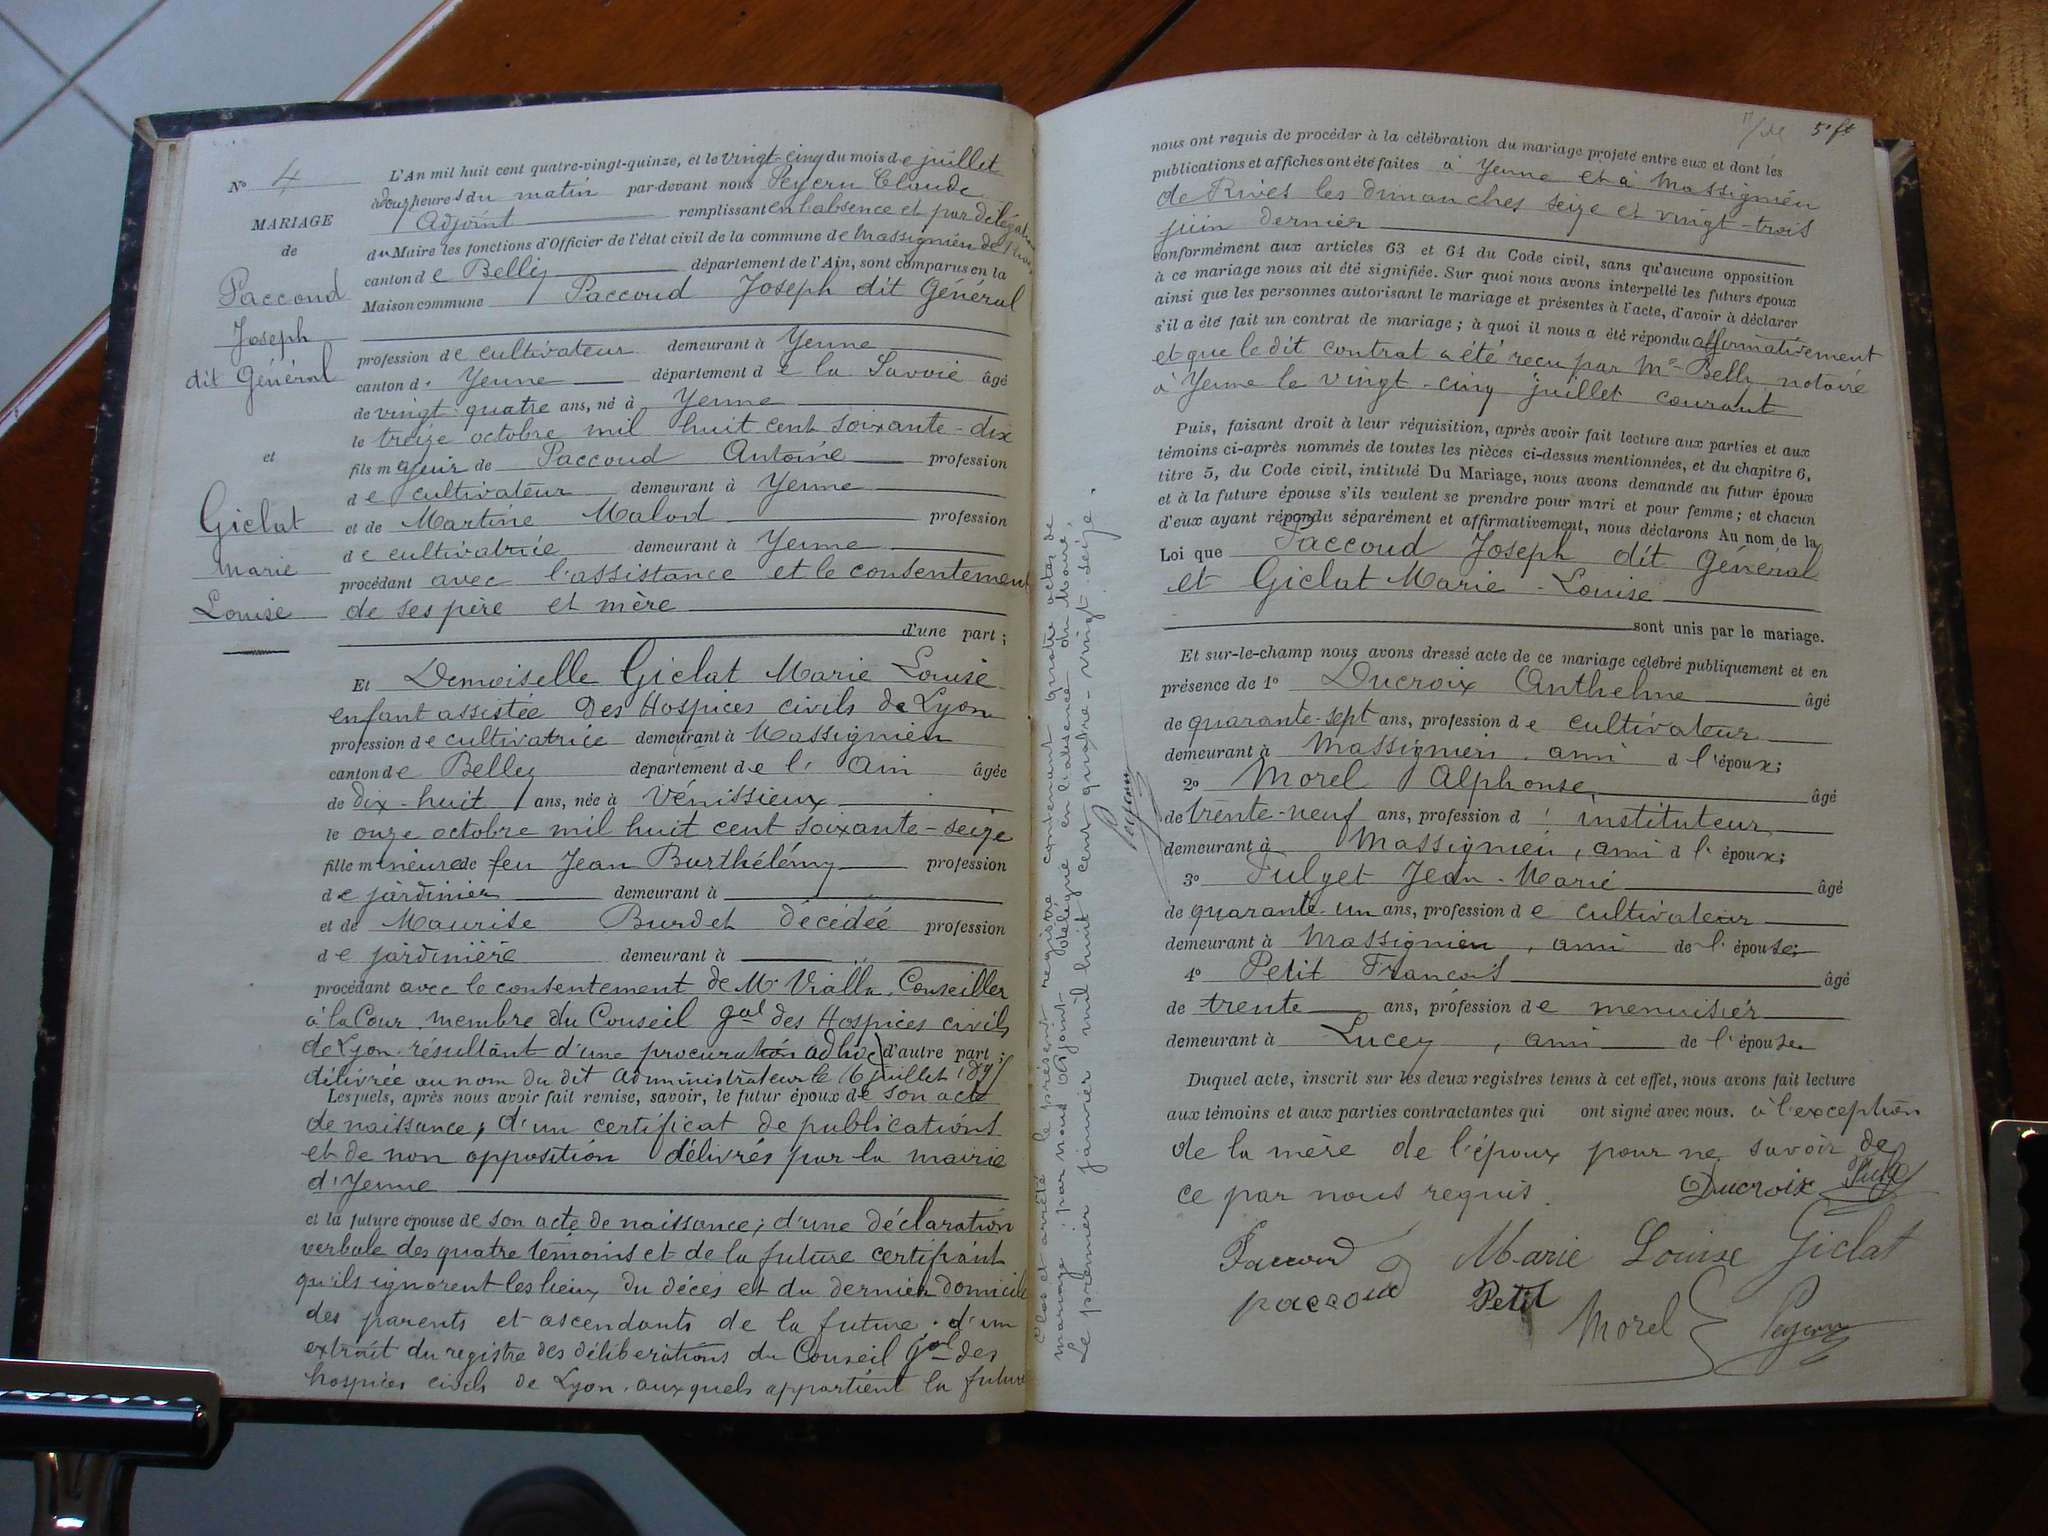 N° 4
MARIAGE
de
Paccoud
Joseph
dit Général
et
Giclat
Marie
Louise
L'An mil huit cent quatre-vingt-quinze, et le vingt-cinq du mois de juillet
à douze heures du matin par-devant nous Peyern Claude
Adjoint remplissant en l'absence et par délégation
du Maire les fonctions d'Officier de l'état civil de la commune de Massignieu de Rives
canton de Belley département de l'Ain, sont comparus en la
Maison commune Paccoud Joseph dit Général
profession de cultivateur demeurant à Yenne
canton d. Yenne département de la Savoie âgé
de vingt-quatre ans, né à Yenne
le treize octobre mil huit cent soixante-dix
fils majeur de Paccoud Antoine profession
de cultivateur demeurant à Yenne
et de Martine Malod profession
de cultivatrice demeurant à Yenne
procédant avec l'assistance et le consentement
de ses père et mère
d'une part;
Et Demoiselle Giclat Marie Louise
enfant assistée des Hospices civils de Lyon
profession de cultivatrice demeurant à Massignieu
canton de Belley département de l'Ain âgée
de dix-huit ans, née à Vénissieux
le onze octobre mil huit cent soixante-seize
fille mineure de feu Jean Burthélémy profession
de jardinier demeurant à
et de Maurise Burdet décédée profession
de jardinière demeurant à
procédant avec le consentement de Mr Vialla, Conseiller
à la Cour, membre du Conseil gal des Hospices civils
de Lyon, résultant d'une procuration ad hoc d'autre part;
délivrée au nom du dit administrateur le 16 juillet 1895
Lesquels, après nous avoir fait remise, savoir, le futur époux de son acte
de naissance, d'un certificat de publications
et de non opposition délivrés par la mairie
d'Yenne
et la future épouse de son acte de naissance; d'une déclaration
verbale des quatre témoins et de la future certifiant
qu'ils ignorent les lieux du décès et du dernier domicile
des parents et ascendants de la future; d'un
extrait du registre des délibérations du Conseil gal des
hospices civils de Lyon, auxquels appartient la future
Clos et arrêté le présent registre contenant quatre actes de
mariage, par nous adjoint délégué en l'absence du Maire,
Le premier janvier mil huit cent quatre-vingt-seize.
Peyern
5e ft
nous ont requis de procéder à la célébration du mariage projeté entre eux et dont les
publications et affiches ont été faites à Yenne et à Massignieu
de Rives les dimanches seize et vingt-trois
juin dernier
conformément aux articles 63 et 64 du Code civil, sans qu'aucune opposition
à ce mariage nous ait été signifiée. Sur quoi nous avons interpellé les futurs époux
ainsi que les personnes autorisant le mariage et présentes à l'acte, d'avoir à déclarer
s'il a été fait un contrat de mariage; à quoi il nous a été répondu affirmativement
et que le dit contrat a été reçu par Me Belly notaire
à Yenne le vingt-cinq juillet courant
Puis, faisant droit à leur réquisition, après avoir fait lecture aux parties et aux
témoins ci-après nommés de toutes les pièces ci-dessus mentionnées, et du chapitre 6,
titre 5, du Code civil, intitulé Du Mariage, nous avons demandé au futur époux
et à la future épouse s'ils veulent se prendre pour mari et pour femme; et chacun
d'eux ayant répondu séparément et affirmativement, nous déclarons Au nom de la
Loi que Paccoud Joseph dit Général
et Giclat Marie-Louise
sont unis par le mariage.
Et sur-le-champ nous avons dressé acte de ce mariage célébré publiquement et en
présence de 1° Ducroix Anthelme âgé
de quarante-sept ans, profession de cultivateur
demeurant à Massignieu, ami d l'époux;
2° Morel Alphonse, âgé
de trente-neuf ans, profession d' instituteur
demeurant à Massignieu, ami d l'époux;
3° Pulyet Jean-Marie âgé
de quarante-un ans, profession de cultivateur
demeurant à Massignieu, ami de l'épouse;
4° Petit François âgé
de trente ans, profession de menuisier
demeurant à Lucey, ami de l'épouse
Duquel acte, inscrit sur les deux registres tenus à cet effet, nous avons fait lecture
aux témoins et aux parties contractantes qui ont signé avec nous. à l'exception
de la mère de l'époux pour ne savoir de
ce par nous requis.
Ducroix
Paccoud Marie Louise Giclat
paccoud Petit
Morel Peyern